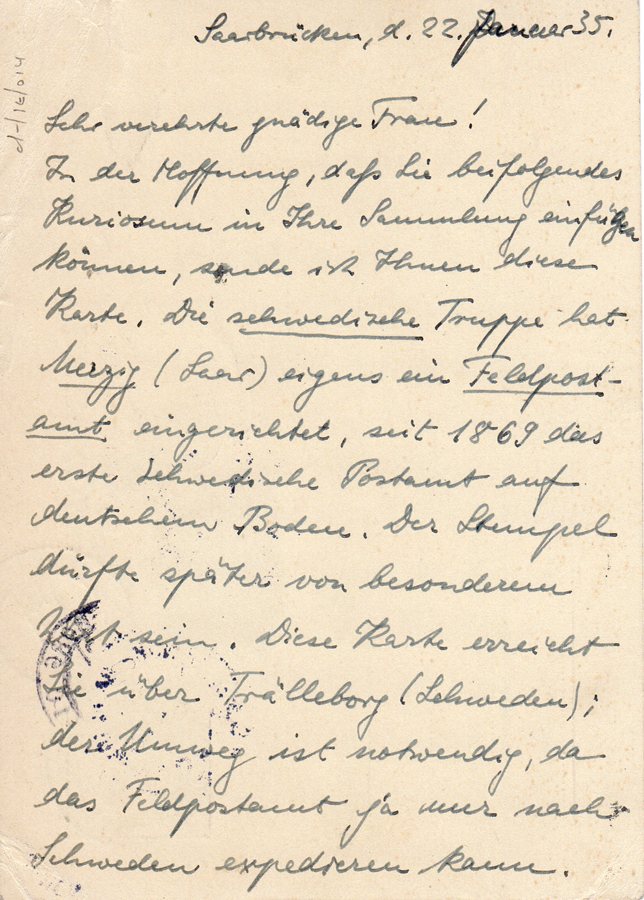 Saarbrücken, d. 22. Januar 35.
Sehr verehrte gnädige Frau!
In der Hoffnung, daß Sie beifolgendes
Kuriosum in Ihre Sammlung einfügen
können, sende ich Ihnen diese
Karte. Die schwedische Truppe hat
Merzig (Saar) eigens ein Feldpost-
amt eingerichtet, seit 1869 das
erste schwedische Postamt auf
deutschem Boden. Der Stempel
dürfte später von besonderem
Wert sein. Diese Karte erreicht
Sie über Trälleborg (Schweden);
der Umweg ist notwendig, da
das Feldpostamt ja nur nach
Schweden expedieren kann.